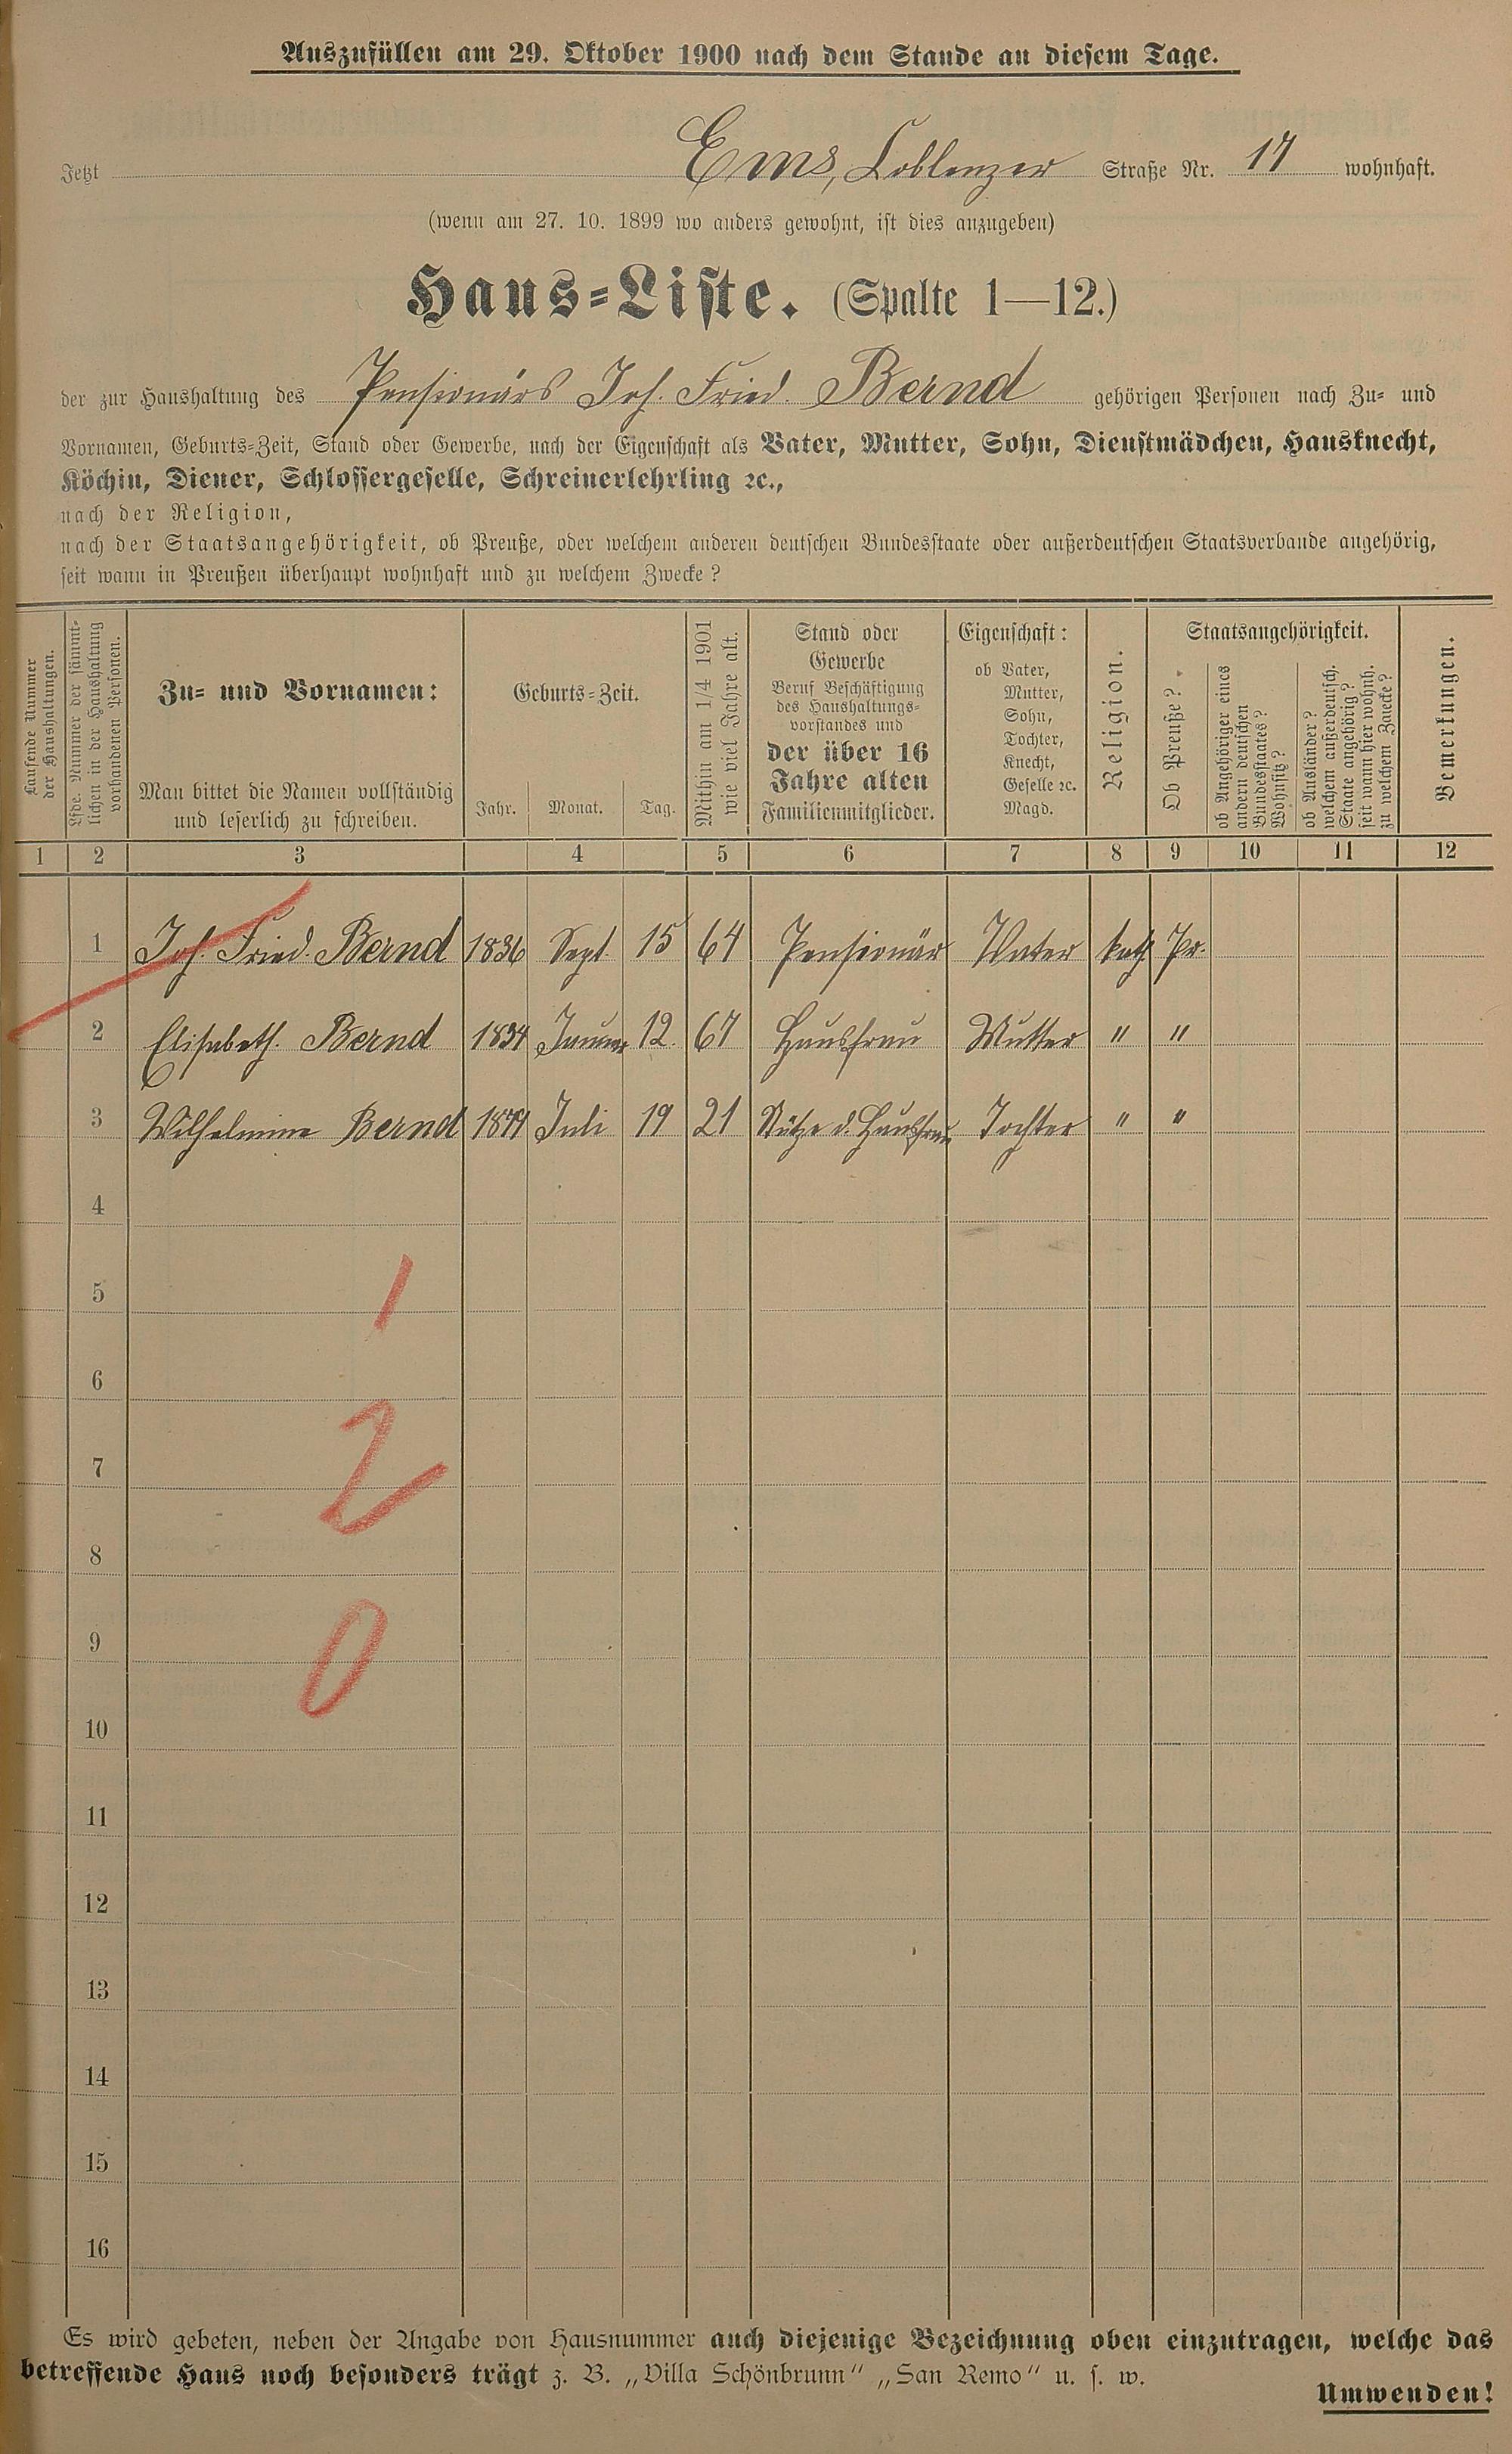 Auszufüllen am 29. Oktober 1900 nach dem Stande an diesem Tage.
Jetzt Ems, Coblenzer Straße Nr. 17 wohnhaft.
(wenn am 27. 10. 1899 wo anders gewohnt, ist dies anzugeben)
Haus-Liste. (Spalte 1—12.)
der zur Haushaltung des Pensionärs Joh. Fried. Bernd gehörigen Personen nach Zu- und
Vornamen, Geburts-Zeit, Stand oder Gewerbe, nach der Eigenschaft als Vater, Mutter, Sohn, Dienstmädchen, Hausknecht,
Köchin, Diener, Schlossergeselle, Schreinerlehrling ꝛc.,
nach der Religion,
nach der Staatsangehörigkeit, ob Preuße, oder welchem anderen deutschen Bundesstaate oder außerdeutschen Staatsverbande angehörig,
seit wann in Preußen überhaupt wohnhaft und zu welchem Zwecke?
Laufende Nummer
der Haushaltungen.
Lfde. Nummer der sämmt-
lichen in der Haushaltung
vorhandenen Personen.
Zu- und Vornamen:
Man bittet die Namen vollständig
und leserlich zu schreiben.
Geburts-Zeit.
Jahr. Monat. Tag.
Mithin am 1/4 1901
wie viel Jahre alt.
Stand oder
Gewerbe
Beruf Beschäftigung
des Haushaltungs-
vorstandes und
der über 16
Jahre alten
Familienmitglieder.
Eigenschaft:
ob Vater,
Mutter,
Sohn,
Tochter,
Knecht,
Geselle ꝛc.
Magd.
Religion.
Staatsangehörigkeit.
Ob Preuße?
ob Angehöriger eines
andern deutschen
Bundesstaates?
Wohnsitz?
ob Ausländer?
welchem außerdeutsch.
Staate angehörig?
seit wann hier wohnh.
zu welchem Zwecke?
Bemerkungen.
1 2 3 4 5 6 7 8 9 10 11 12
1 Joh. Fried. Bernd 1836 Sept. 15 64 Pensionär Vater kath Pr.
2 Elisabeth. Bernd 1834 Januar 12. 67 Hausfrau Mutter " "
3 Wilhelmine Bernd 1879 Juli 19 21 Stütze d. Hausfrau Tochter " "
4
5
1
6
7
2
8
9
0
10
11
12
13
14
15
16
Es wird gebeten, neben der Angabe von Hausnummer auch diejenige Bezeichnung oben einzutragen, welche das
betreffende Haus noch besonders trägt z. B. „Villa Schönbrunn" „San Remo" u. s. w.
Umwenden!